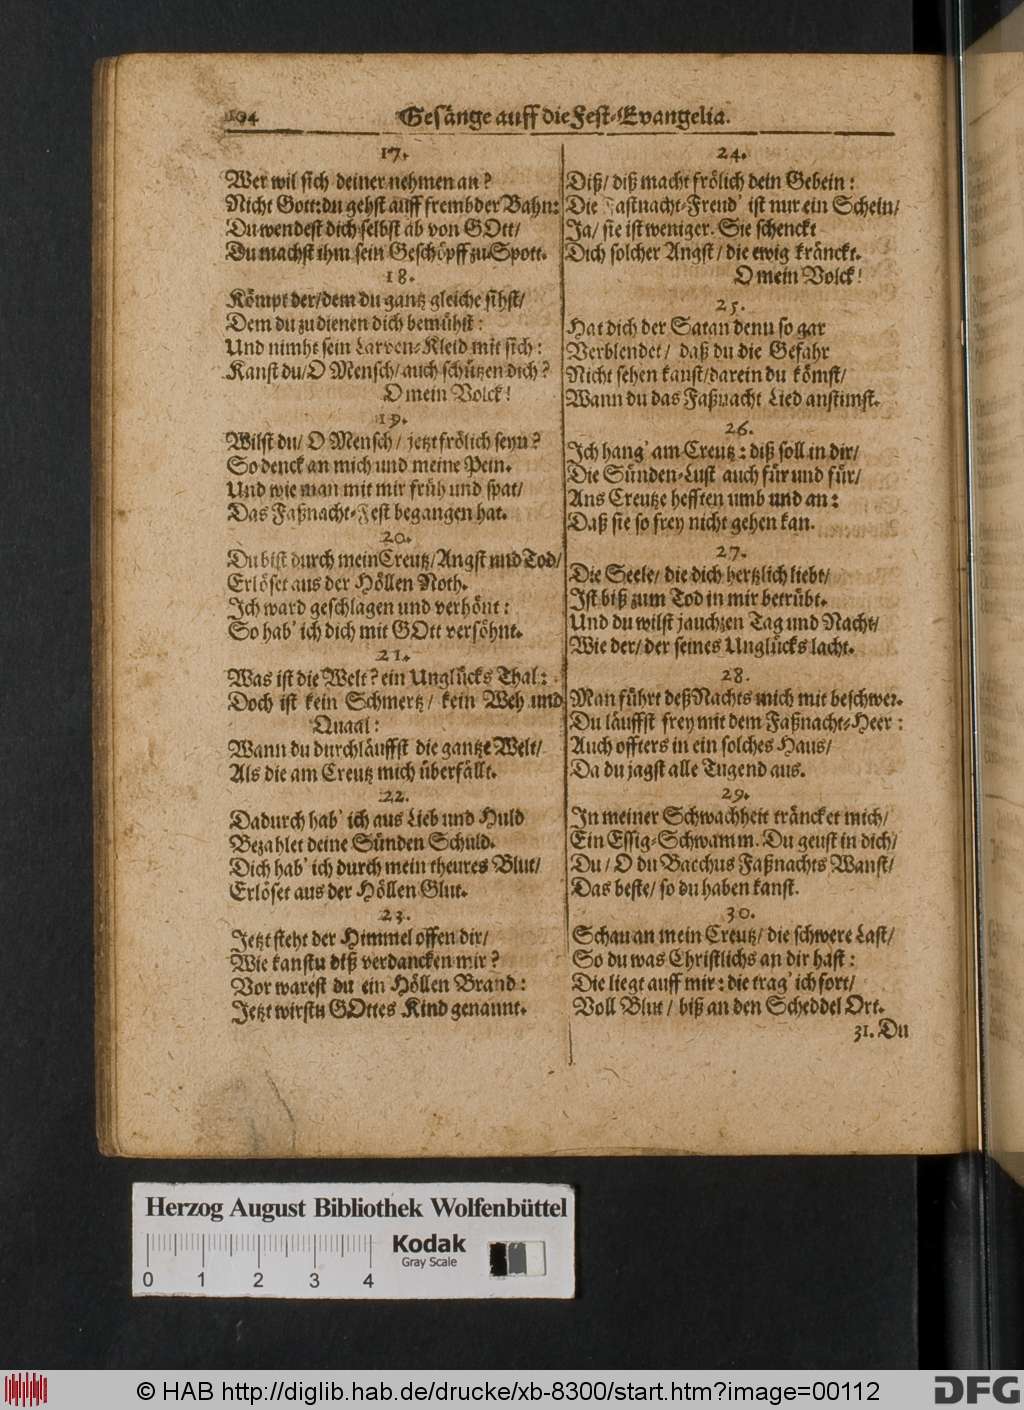 194
Gesänge auff die Fest-Evangelia.
17.
Wer wil sich deiner nehmen an?
Nicht Gott: du gehst auff frembder Bahn:
Du wendest dich selbst ab von GOtt/
Du machst ihm sein Geschöpff zu Spott.
18.
Kömpt der/ dem du gantz gleiche sihst/
Dem du zu dienen dich bemühst:
Und nimht sein Larven-Kleid mit sich:
Kanst du/ O Mensch/ auch schützen dich?
O mein Volck!
19.
Wilst du/ O Mensch/ jetzt frölich seyn?
So denck an mich und meine Pein.
Und wie man mit mir früh und spat/
Das Faßnacht-Fest begangen hat.
20.
Du bist durch mein Creutz/ Angst und Tod/
Erlöset aus der Höllen Noth.
Ich ward geschlagen und verhönt:
So hab' ich dich mit GOtt versöhnt.
21.
Was ist die Welt? ein Unglücks Thal:
Doch ist kein Schmertz/ kein Weh und
Quaal:
Wann du durchläuffst die gantze Welt/
Als die am Creutz mich überfällt.
22.
Dadurch hab' ich aus Lieb und Huld
Bezahlet deine Sünden Schuld.
Dich hab' ich durch mein theures Blut/
Erlöset aus der Höllen Glut.
23.
Jetzt steht der Himmel offen dir/
Wie kanstu diß verdancken mir?
Vor warest du ein Höllen Brand:
Jetzt wirstu GOttes Kind genannt.
24.
Diß/ diß macht frölich dein Gebein:
Die Fastnacht-Freud' ist nur ein Schein/
Ja/ sie ist weniger. Sie schenckt
Dich solcher Angst/ die ewig kränckt.
O mein Volck!
25.
Hat dich der Satan denn so gar
Verblendet/ daß du die Gefahr
Nicht sehen kanst/ darein du kömst/
Wann du das Faßnacht Lied anstimst.
26.
Ich hang' am Creutz: diß soll in dir/
Die Sünden-Lust auch für und für/
Ans Creutze hefften umb und an:
Daß sie so frey nicht gehen kan.
27.
Die Seele/ die dich hertzlich liebt/
Ist biß zum Tod in mir betrübt.
Und du wilst jauchzen Tag und Nacht/
Wie der/ der seines Unglücks lacht.
28.
Man führt deß Nachts mich mit beschwer.
Du läuffst frey mit dem Faßnacht-Heer:
Auch offters in ein solches Haus/
Da du jagst alle Tugend aus.
29.
In meiner Schwachheit träncket mich/
Ein Essig-Schwamm. Du geust in dich/
Du/ O du Bacchus Faßnachts Wanst/
Das beste/ so du haben kanst.
30.
Schau an mein Creutz/ die schwere Last/
So du was Christlichs an dir hast:
Die liegt auff mir: die trag' ich fort/
Voll Blut/ biß an den Scheddel Ort.
31. Du
Herzog August Bibliothek Wolfenbüttel
Kodak
Gray Scale
0 1 2 3 4
© HAB http://diglib.hab.de/drucke/xb-8300/start.htm?image=00112
DFG